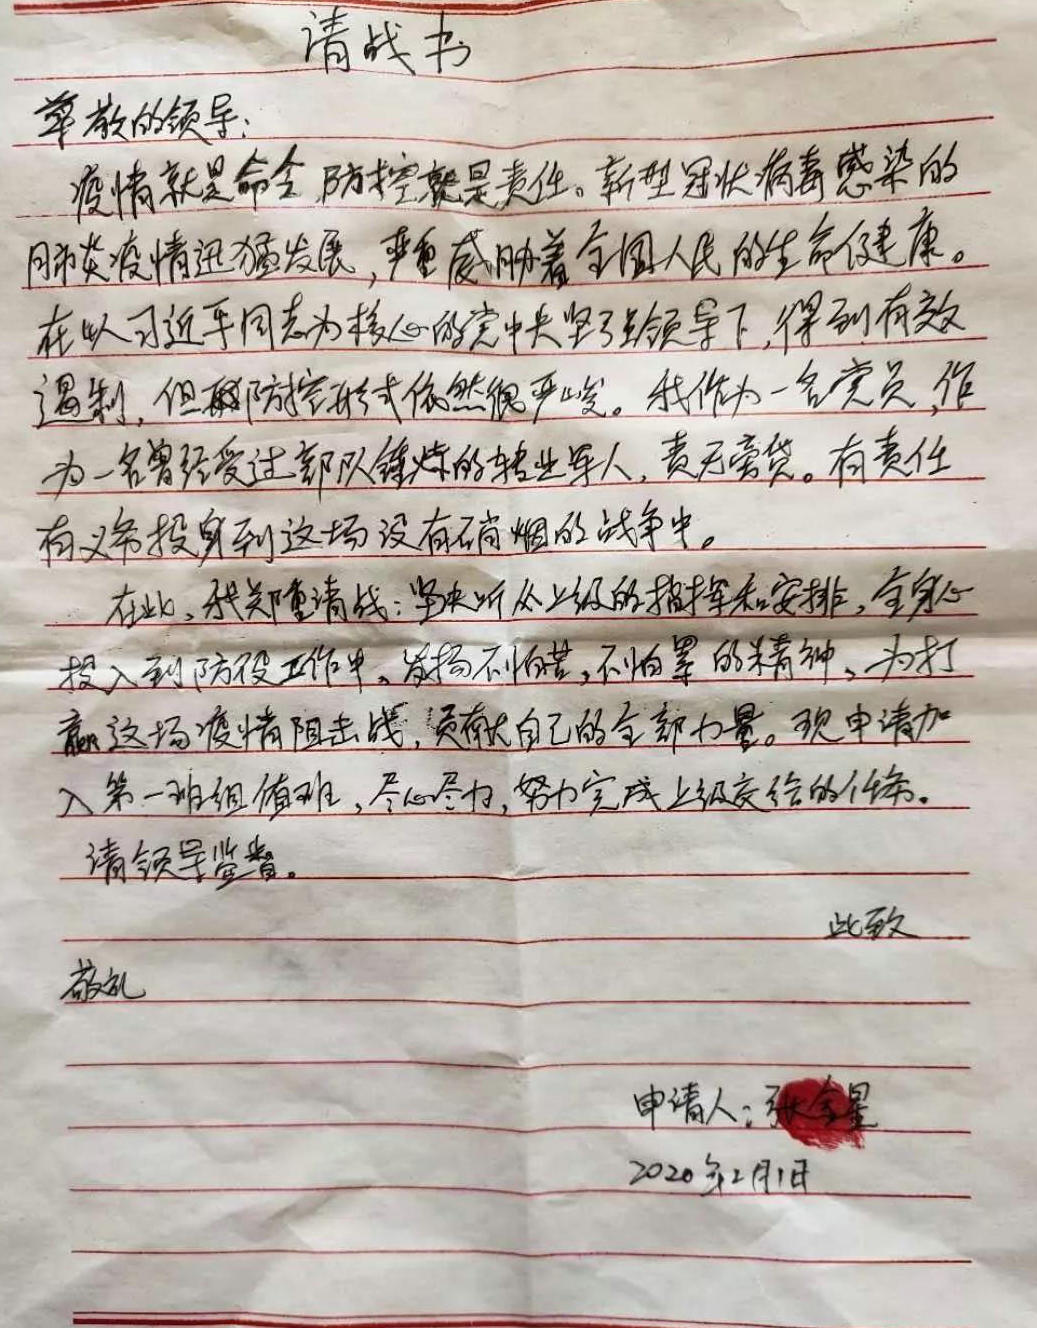 请战书
尊敬的领导:
疫情就是命令 防控就是责任。新型冠状病毒感染的
肺炎疫情迅猛发展,严重威胁着全国人民的生命健康。
在以习近平同志为核心的党中央坚强领导下,得到有效
遏制,但防控形式依然很严峻。我作为一名党员,作
为一名曾经受过部队锤炼的转业军人,责无旁贷。有责任
有义务投身到这场没有硝烟的战争中。
在此,我郑重请战:坚决听从上级的指挥和安排,全身心
投入到防役工作中。发扬不怕苦,不怕累的精神、为打
赢这场疫情阻击战,贡献自己的全部力量。现申请加
入第一班组值班,尽心尽力,努力完成上级交给的任务。
请领导监督。
此致
敬礼
申请人:张金星
2020年2月1日